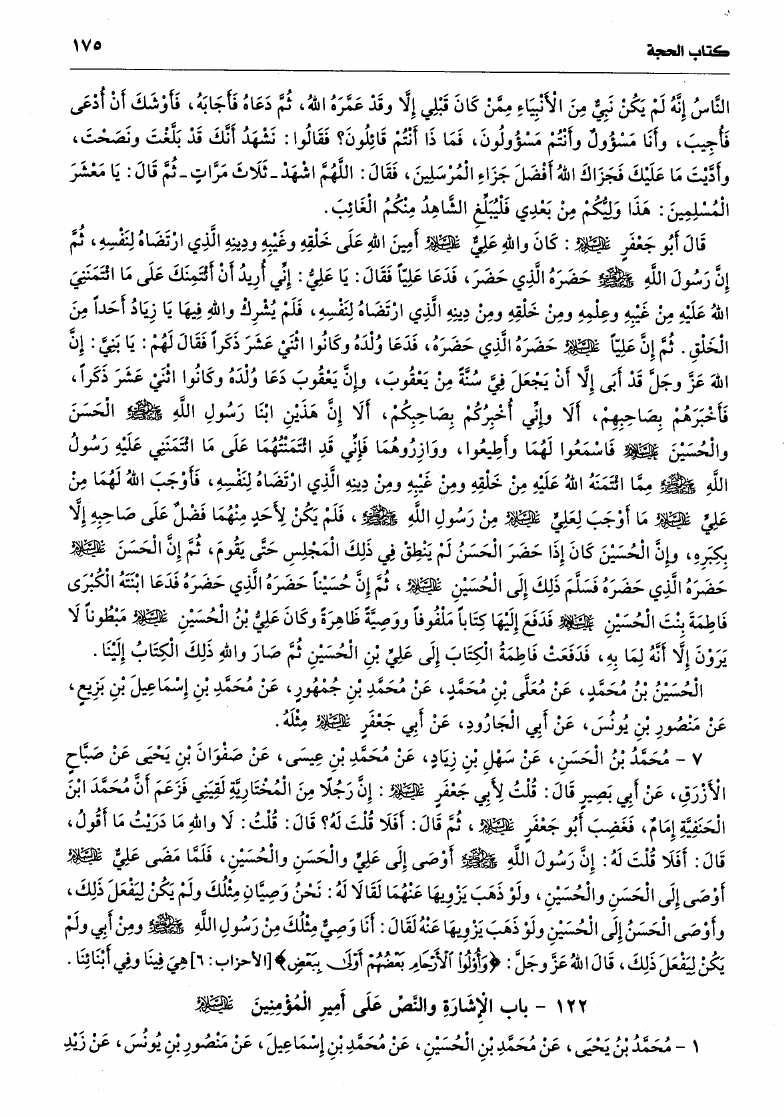 كتاب الحجة ١٧٥
النَّاسُ إِنَّهُ لَمْ يَكُنْ نَبِيٌّ مِنَ الْأَنْبِيَاءِ مِمَّنْ كَانَ قَبْلِي إِلَّا وقَدْ عَمَّرَهُ اللهُ، ثُمَّ دَعَاهُ فَأَجَابَهُ، فَأَوْشَكَ أَنْ أُدْعَى
فَأُجِيبَ، وأَنَا مَسْؤُولٌ وأَنْتُمْ مَسْؤُولُونَ، فَمَا ذَا أَنْتُمْ قَائِلُونَ؟ فَقَالُوا: نَشْهَدُ أَنَّكَ قَدْ بَلَّغْتَ ونَصَحْتَ،
وأَدَّيْتَ مَا عَلَيْكَ فَجَزَاكَ اللهُ أَفْضَلَ جَزَاءِ الْمُرْسَلِينَ، فَقَالَ: اللَّهُمَّ اشْهَدْ ـ ثَلَاثَ مَرَّاتٍ ـ ثُمَّ قَالَ: يَا مَعْشَرَ
الْمُسْلِمِينَ: هَذَا وَلِيُّكُمْ مِنْ بَعْدِي فَلْيُبَلِّغِ الشَّاهِدُ مِنْكُمُ الْغَائِبَ.
قَالَ أَبُو جَعْفَرٍ عَلَيْهِ السَّلَام: كَانَ واللهِ عَلِيٌّ عَلَيْهِ السَّلَام أَمِينَ اللهِ عَلَى خَلْقِهِ وغَيْبِهِ ودِينِهِ الَّذِي ارْتَضَاهُ لِنَفْسِهِ، ثُمَّ
إِنَّ رَسُولَ اللهِ ﷺ حَضَرَهُ الَّذِي حَضَرَ، فَدَعَا عَلِيّاً فَقَالَ: يَا عَلِيُّ: إِنِّي أُرِيدُ أَنْ أَئْتَمِنَكَ عَلَى مَا ائْتَمَنَنِيَ
اللهُ عَلَيْهِ مِنْ غَيْبِهِ وعِلْمِهِ ومِنْ خَلْقِهِ ومِنْ دِينِهِ الَّذِي ارْتَضَاهُ لِنَفْسِهِ، فَلَمْ يُشْرِكْ واللهِ فِيهَا يَا زِيَادُ أَحَداً مِنَ
الْخَلْقِ. ثُمَّ إِنَّ عَلِيّاً عَلَيْهِ السَّلَام حَضَرَهُ الَّذِي حَضَرَهُ، فَدَعَا وُلْدَهُ وكَانُوا اثْنَيْ عَشَرَ ذَكَراً فَقَالَ لَهُمْ: يَا بَنِيَّ: إِنَّ
اللهَ عَزَّ وجَلَّ قَدْ أَبَى إِلَّا أَنْ يَجْعَلَ فِيَّ سُنَّةً مِنْ يَعْقُوبَ، وإِنَّ يَعْقُوبَ دَعَا وُلْدَهُ وكَانُوا اثْنَيْ عَشَرَ ذَكَراً،
فَأَخْبَرَهُمْ بِصَاحِبِهِمْ، أَلَا وإِنِّي أُخْبِرُكُمْ بِصَاحِبِكُمْ، أَلَا إِنَّ هَذَيْنِ ابْنَا رَسُولِ اللهِ ﷺ الْحَسَنَ
والْحُسَيْنَ عَلَيْهِ السَّلَام فَاسْمَعُوا لَهُمَا وأَطِيعُوا، ووَازِرُوهُمَا فَإِنِّي قَدِ ائْتَمَنْتُهُمَا عَلَى مَا ائْتَمَنَنِي عَلَيْهِ رَسُولُ
اللهِ ﷺ مِمَّا ائْتَمَنَهُ اللهُ عَلَيْهِ مِنْ خَلْقِهِ ومِنْ غَيْبِهِ ومِنْ دِينِهِ الَّذِي ارْتَضَاهُ لِنَفْسِهِ، فَأَوْجَبَ اللهُ لَهُمَا مِنْ
عَلِيٍّ عَلَيْهِ السَّلَام مَا أَوْجَبَ لِعَلِيٍّ عَلَيْهِ السَّلَام مِنْ رَسُولِ اللهِ ﷺ، فَلَمْ يَكُنْ لِأَحَدٍ مِنْهُمَا فَضْلٌ عَلَى صَاحِبِهِ إِلَّا
بِكِبَرِهِ، وإِنَّ الْحُسَيْنَ كَانَ إِذَا حَضَرَ الْحَسَنُ لَمْ يَنْطِقْ فِي ذَلِكَ الْمَجْلِسِ حَتَّى يَقُومَ، ثُمَّ إِنَّ الْحَسَنَ عَلَيْهِ السَّلَام
حَضَرَهُ الَّذِي حَضَرَهُ فَسَلَّمَ ذَلِكَ إِلَى الْحُسَيْنِ عَلَيْهِ السَّلَام، ثُمَّ إِنَّ حُسَيْناً حَضَرَهُ الَّذِي حَضَرَهُ فَدَعَا ابْنَتَهُ الْكُبْرَى
فَاطِمَةَ بِنْتَ الْحُسَيْنِ عَلَيْهِ السَّلَام فَدَفَعَ إِلَيْهَا كِتَاباً مَلْفُوفاً ووَصِيَّةً ظَاهِرَةً وكَانَ عَلِيُّ بْنُ الْحُسَيْنِ عَلَيْهِ السَّلَام مَبْطُوناً لَا
يَرَوْنَ إِلَّا أَنَّهُ لِمَا بِهِ، فَدَفَعَتْ فَاطِمَةُ الْكِتَابَ إِلَى عَلِيِّ بْنِ الْحُسَيْنِ ثُمَّ صَارَ واللهِ ذَلِكَ الْكِتَابُ إِلَيْنَا.
الْحُسَيْنُ بْنُ مُحَمَّدٍ، عَنْ مُعَلَّى بْنِ مُحَمَّدٍ، عَنْ مُحَمَّدِ بْنِ جُمْهُورٍ، عَنْ مُحَمَّدِ بْنِ إِسْمَاعِيلَ بْنِ بَزِيعٍ،
عَنْ مَنْصُورِ بْنِ يُونُسَ، عَنْ أَبِي الْجَارُودِ، عَنْ أَبِي جَعْفَرٍ عَلَيْهِ السَّلَام مِثْلَهُ.
٧ - مُحَمَّدُ بْنُ الْحَسَنِ، عَنْ سَهْلِ بْنِ زِيَادٍ، عَنْ مُحَمَّدِ بْنِ عِيسَى، عَنْ صَفْوَانَ بْنِ يَحْيَى عَنْ صَبَّاحٍ
الْأَزْرَقِ، عَنْ أَبِي بَصِيرٍ قَالَ: قُلْتُ لِأَبِي جَعْفَرٍ عَلَيْهِ السَّلَام: إِنَّ رَجُلًا مِنَ الْمُخْتَارِيَّةِ لَقِيَنِي فَزَعَمَ أَنَّ مُحَمَّدَ ابْنَ
الْحَنَفِيَّةِ إِمَامٌ، فَغَضِبَ أَبُو جَعْفَرٍ عَلَيْهِ السَّلَام، ثُمَّ قَالَ: أَفَلَا قُلْتَ لَهُ؟ قَالَ: قُلْتُ: لَا واللهِ مَا دَرَيْتُ مَا أَقُولُ،
قَالَ: أَفَلَا قُلْتَ لَهُ: إِنَّ رَسُولَ اللهِ ﷺ أَوْصَى إِلَى عَلِيٍّ والْحَسَنِ والْحُسَيْنِ، فَلَمَّا مَضَى عَلِيٌّ عَلَيْهِ السَّلَام
أَوْصَى إِلَى الْحَسَنِ والْحُسَيْنِ، ولَوْ ذَهَبَ يَزْوِيهَا عَنْهُمَا لَقَالَا لَهُ: نَحْنُ وَصِيَّانِ مِثْلُكَ ولَمْ يَكُنْ لِيَفْعَلَ ذَلِكَ،
وأَوْصَى الْحَسَنُ إِلَى الْحُسَيْنِ ولَوْ ذَهَبَ يَزْوِيهَا عَنْهُ لَقَالَ: أَنَا وَصِيٌّ مِثْلُكَ مِنْ رَسُولِ اللهِ ﷺ ومِنْ أَبِي ولَمْ
يَكُنْ لِيَفْعَلَ ذَلِكَ، قَالَ اللهُ عَزَّ وجَلَّ: ﴿وَأُوْلُوا الْأَرْحَامِ بَعْضُهُمْ أَوْلَى بِبَعْضٍ﴾ [الأحزاب: ٦] هِيَ فِينَا وفِي أَبْنَائِنَا.
١٢٢ - باب الْإِشَارَةِ والنَّصِّ عَلَى أَمِيرِ الْمُؤْمِنِينَ عَلَيْهِ السَّلَام
١ - مُحَمَّدُ بْنُ يَحْيَى، عَنْ مُحَمَّدِ بْنِ الْحُسَيْنِ، عَنْ مُحَمَّدِ بْنِ إِسْمَاعِيلَ، عَنْ مَنْصُورِ بْنِ يُونُسَ، عَنْ زَيْدِ